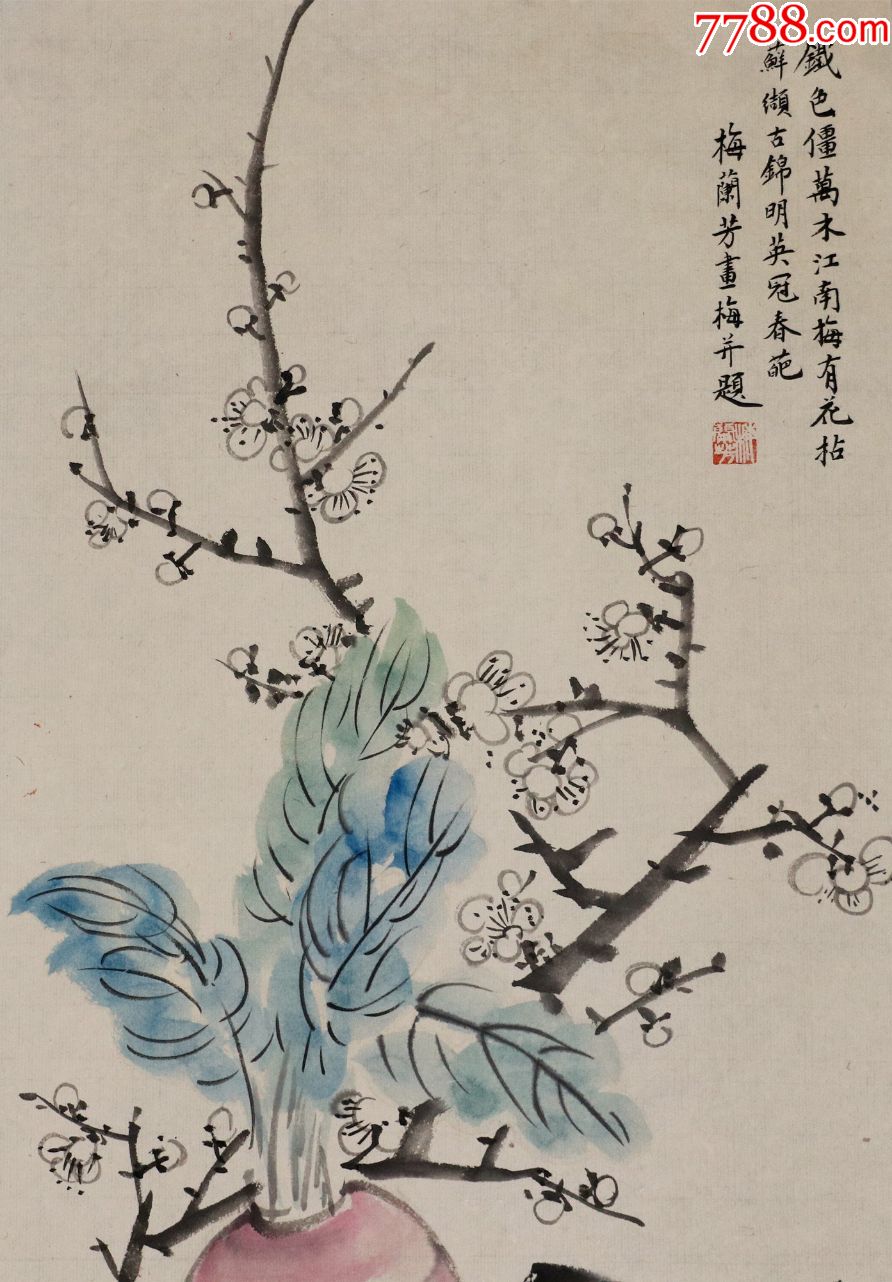 7788.com
鐵色僵萬木江南梅有花拈
蘚纈古錦明英冠春葩
梅蘭芳畫梅并題